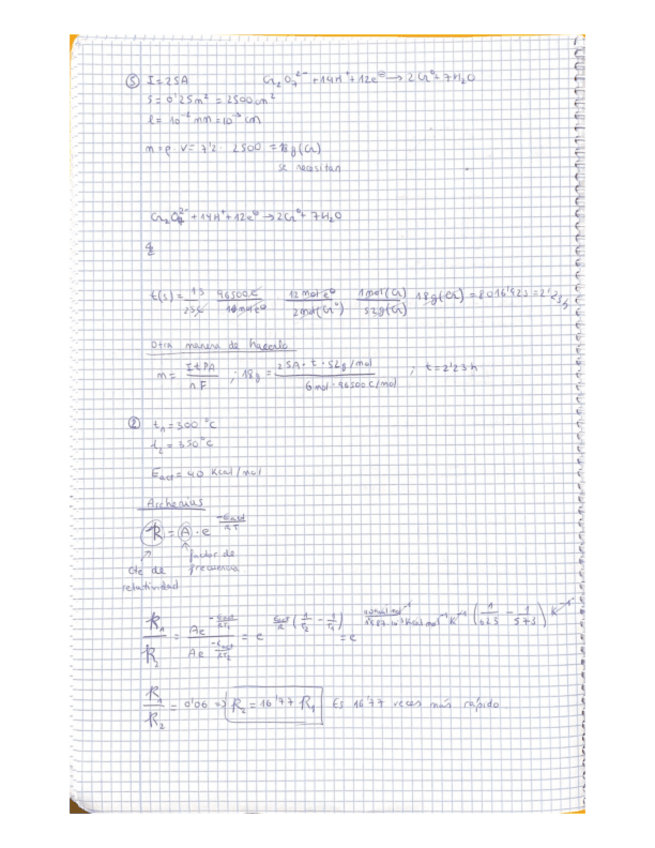 ⑤ I = 25A Cr₂O₇²⁻ + 14H⁺ + 12e⁻ → 2Cr⁰ + 7H₂O
S = 0'25m² = 2500cm²
l = 10⁻² mm = 10⁻³ cm
m = ρ · V = 7'2 · 2500 = 18g (Cr)
se necesitan
Cr₂O₇²⁻ + 14H⁺ + 12e⁻ → 2Cr⁰ + 7H₂O
t(s) = 1s/25C · 96500C/1mol e⁻ · 12 mol e⁻/2mol(Cr⁰) · 1mol(Cr)/52g(Cr) · 18g(Cr) = 8016'42s = 2'23h
Otra manera de hacerlo
m = ItPA/nF ; 18g = 25A · t · 52g/mol / 6mol · 96500C/mol ; t = 2'23h
② t₁ = 300 °C
t₂ = 350 °C
Eact = 40 Kcal/mol
Arrhenius
K = A · e^(-Eact/RT)
factor de
Cte de frecuencia
relatividad
K₁/K₂ = Ae^(-Eact/RT₁) / Ae^(-Eact/RT₂) = e^(Eact/R (1/T₂ - 1/T₁)) = e^(40Kcal mol⁻¹ / 1'987·10⁻³Kcal mol⁻¹ K⁻¹ (1/623 - 1/573) K⁻¹)
K₁/K₂ = 0'06 => K₂ = 16'77 K₁ Es 16'77 veces más rápido